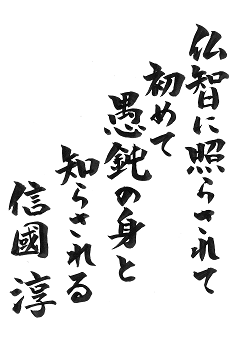 仏智に照らされて
初めて
愚鈍の身と
知らされる
信國淳